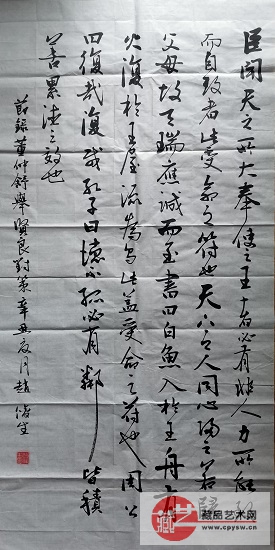 臣闻天之所大奉使之王者必有非人力所能
而自致者此受命之符也天下之人同心归之若归
父母故天瑞应诚而至书曰白鱼入于王舟有
火复于王屋流为乌此盖受命之符也周公
曰复哉复哉孔子曰德不孤必有邻皆积
善累德之效也
节录董仲舒举贤良对策辛丑夏月赵
藏品艺术网
www.cpysw.cn